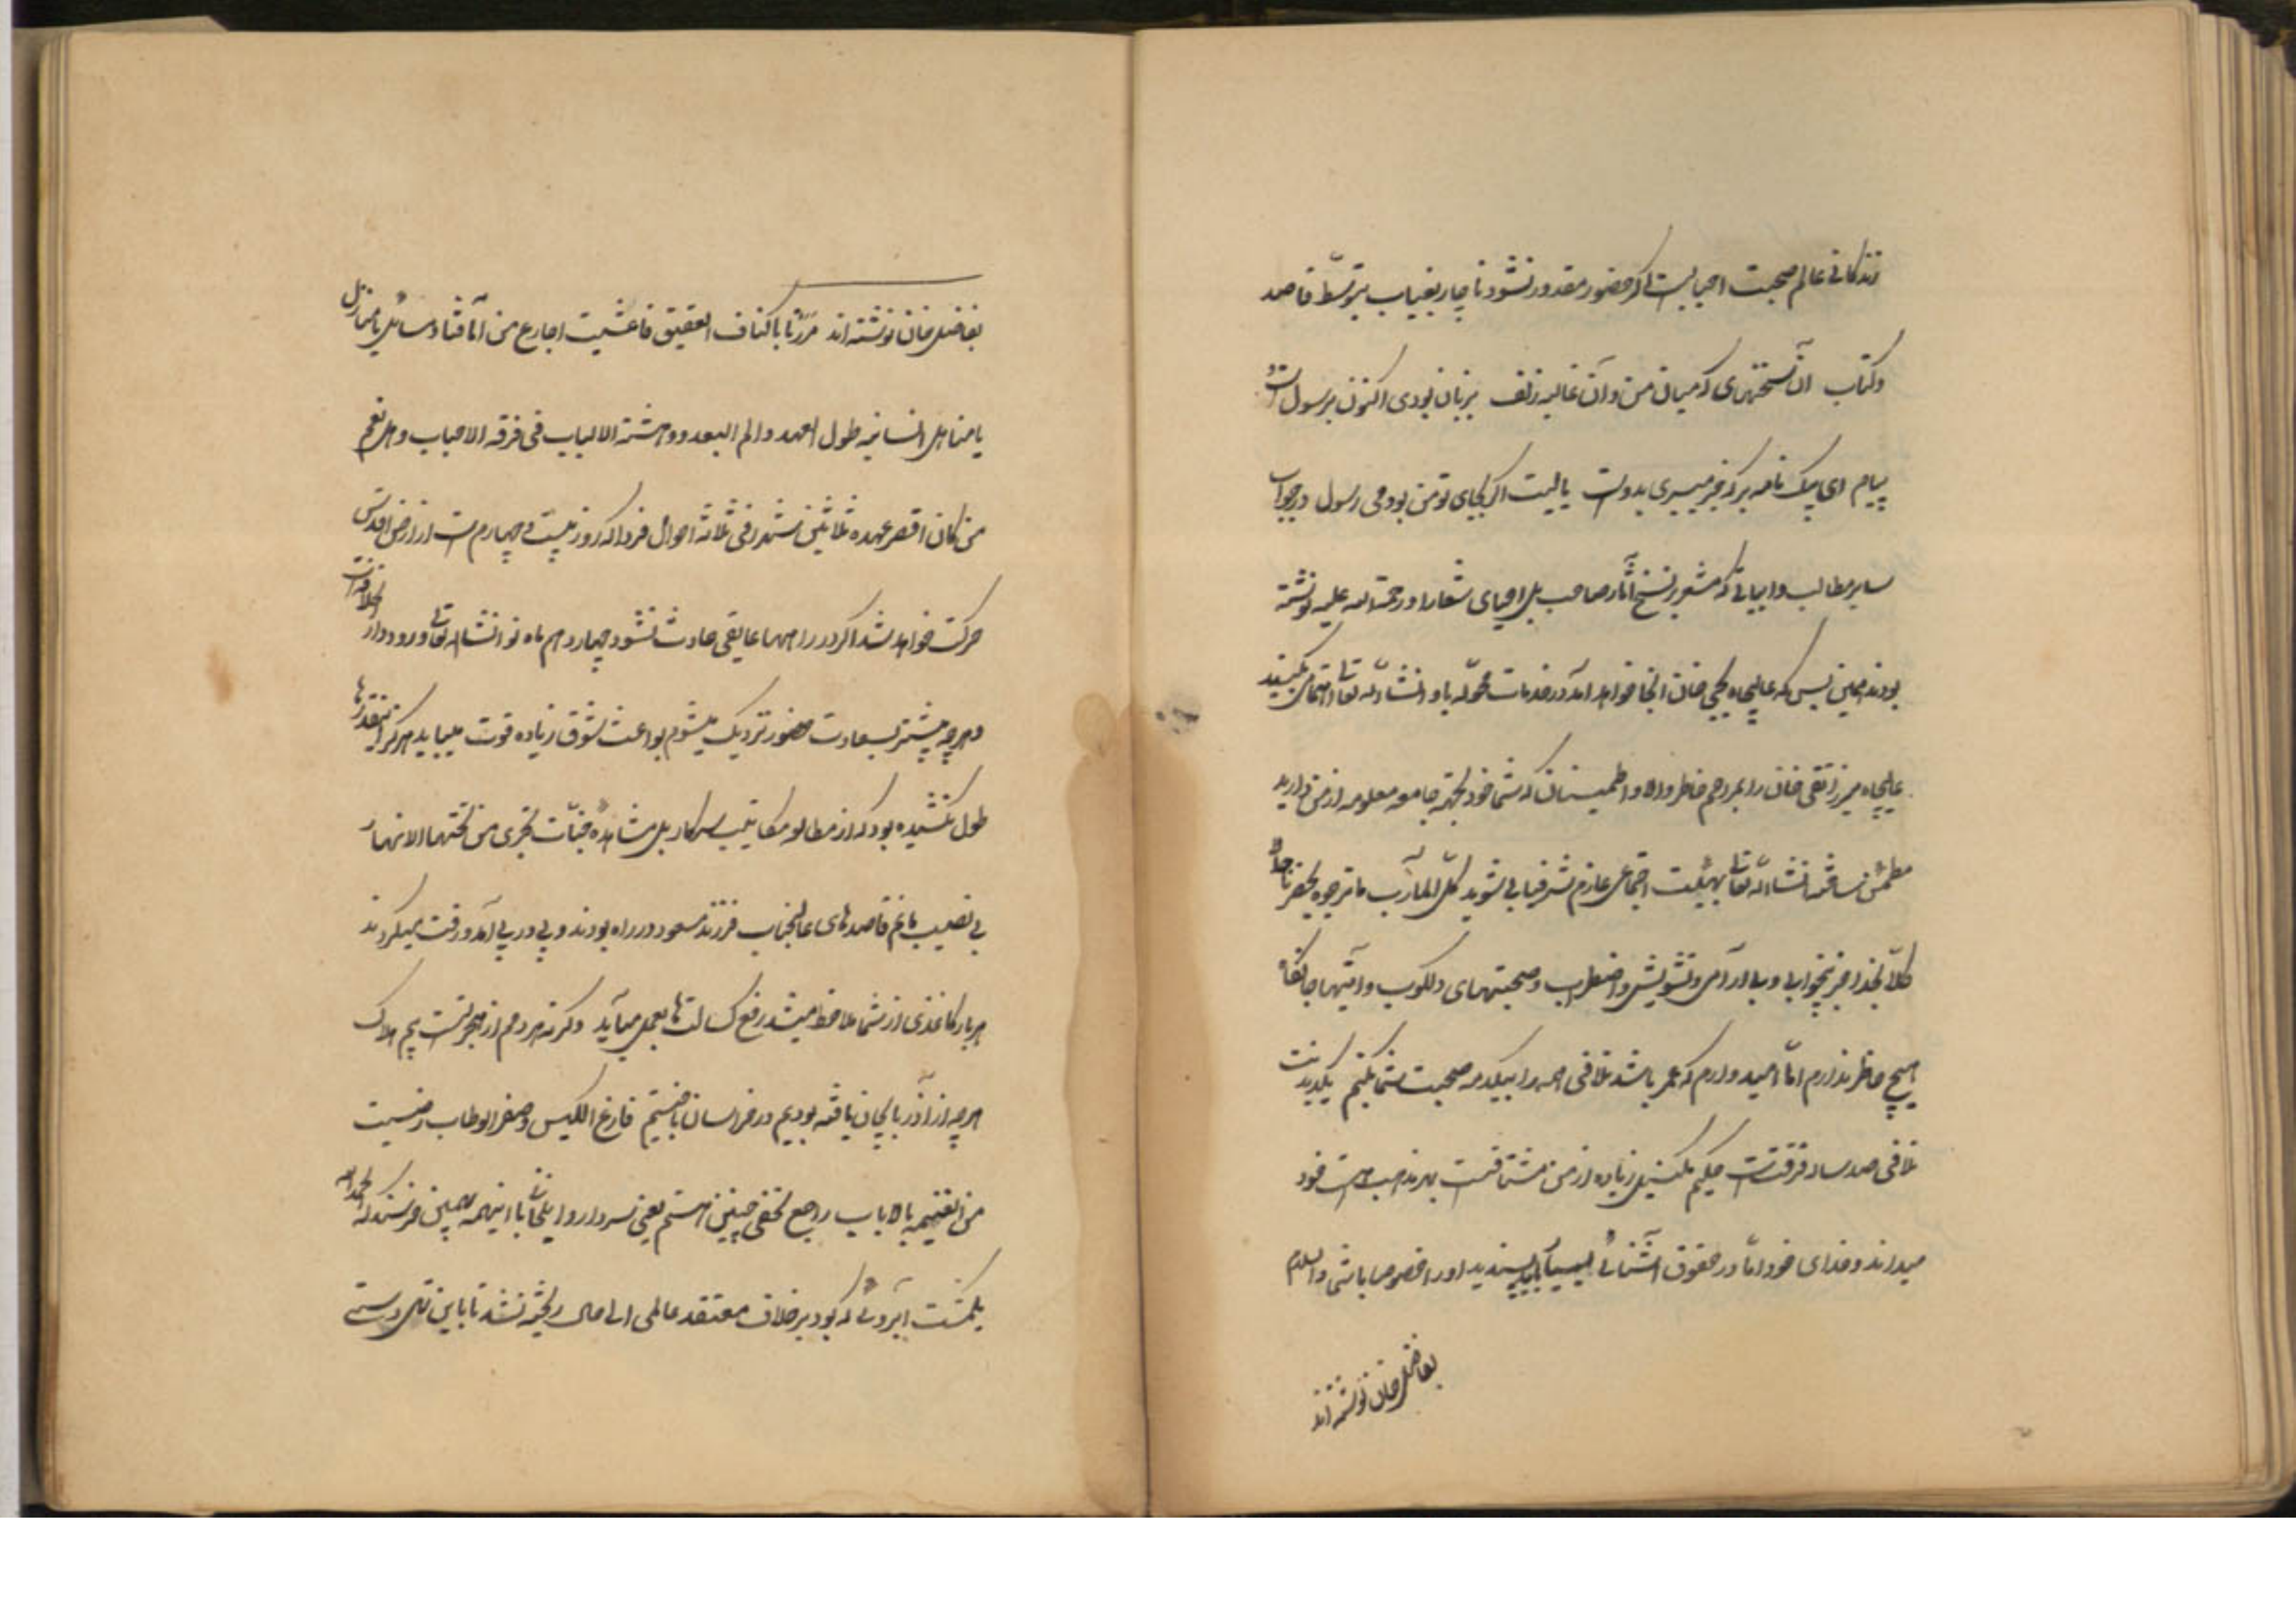 زندگانی عالم صحبت احباب است اگر حضور مقدور نشود ناچار بغیاب بتوسّط قاصد
و کتاب آن سخنهای که میان من و آن غالیه زلف بزبان بودی اکنون برسول است و
پیام ای پیک نامه بر که خبر میبری بدوست یالیت اگر بجای تو من بودمی رسول در جواب
سایر مطالب و ابیاتی که مشعر بنسخ آثار صاحب بل احیای شعار او رحمة الله علیه نوشته
بودند همین بس که عالیجاه یحیی خان آنجا خواهد آمد در خدمات محوّله باو انشاء الله تعالی اهتمام بکنید
عالیجاه میرزا تقی خان را بمراحم خاطر والا و اطمینان که شما خود بجهة جامعه معلومه از من دارید
مطمئن ساخته انشاء الله تعالی بهیئت اجتماعی عازم شرفیابی شوید لکل المآرب ما ترجوه یحضرنا
کلّا بخدا جز بیخوابی و بی آرامی و تشویش و اضطراب و صحبتهای دلکوب و آیتهای جانکاه
هیچ حاضر ندارم امّا امیدوارم که عمر باشد تلافی همه را بیکدمه صحبت شما بکنم یکدیدنت
تلافی صد ساله فرقتست چکیم ملنیل زیاده از من مشتاقست بهر مذهب هست خود
میداند و خدای خود امّا در حقوق آشنائی بسیار پسندید او را مخصوصا باشی والسلام
بفاضل خان نوشته اند
بفاضل خان نوشته اند مررنا باکناف العقیق فاعشبت اجارع من آماقنا و مسائل یا منازل
یا مناهل انسانیه طول العهد و الم البعد و وحشة الالباب فی فرقة الاحباب و هل نعم
من کان اقصر عهده ثلاثین شهرا فی ثلاثة احوال فردا که روز بیست و چهارم است از ارض اقدس
حرکت خواهد شد اگر در راهها عایقی حادث نشود چهاردهم ماه نو انشاء الله تعالی ورود دار الخلافه است
و هر چه بیشتر بسعادت حضور نزدیک میشوم بواعث شوق زیاده قوت مییابد هرگز اینقدرها
طول نکشیده بود که از مطالعه مکاتیب سرکار بل مشاهده جنّات تجری من تحتها الانهار
بی نصیب مانم قاصدهای عالیجناب فرزند مسعود در راه بودند و پی در پی آمد و رفت میکردند
هر بار کاغذی از شما ملاحظه میشد رفع کسالتها بعمل میآید وگرنه هر دم از هجر تست بیم هلاک
هر چه از آذربایجان یافته بودیم در خراسان باختیم فارغ الکیس و صفر الوطاب رضیت
من الغنیمة بالایاب راجع بخفی حنین هستم یعنی سردار و ایلخانی با اینهمه همین خرسند که الحمد لله
یکمشت آبروئی که بود بر خلاف معتقد عالمی الی حال ریخته نشد تا باین تهی دستی